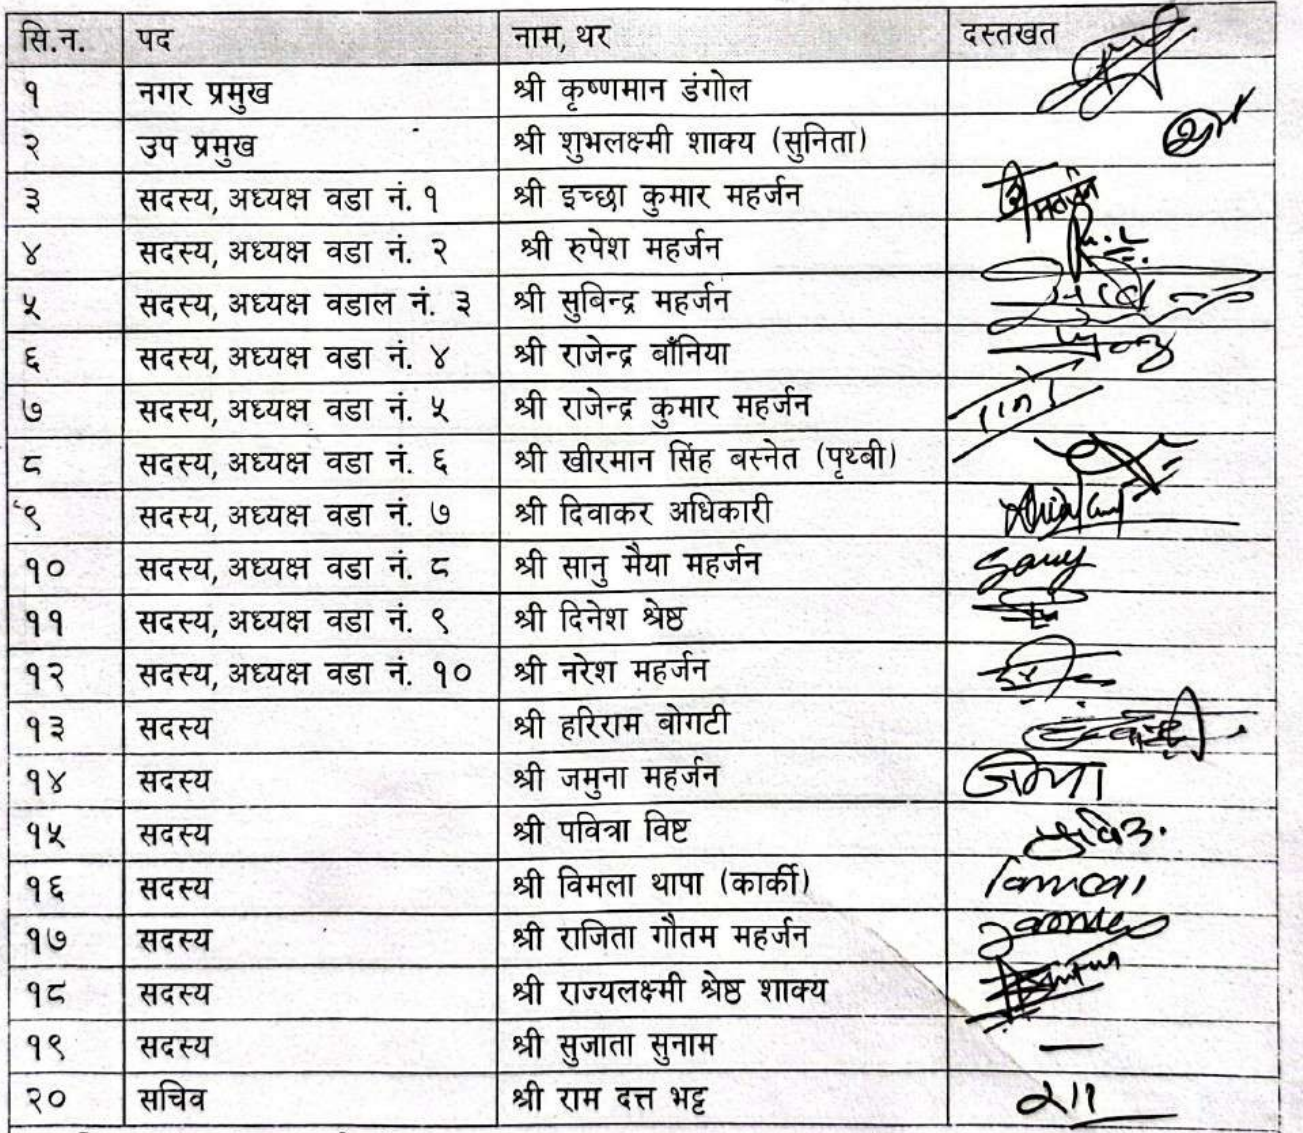 सि.न. पद नाम, थर दस्तखत
१ नगर प्रमुख श्री कृष्णमान डंगोल
२ उप प्रमुख श्री शुभलक्ष्मी शाक्य (सुनिता)
३ सदस्य, अध्यक्ष वडा नं. १ श्री इच्छा कुमार महर्जन
४ सदस्य, अध्यक्ष वडा नं. २ श्री रुपेश महर्जन
५ सदस्य, अध्यक्ष वडाल नं. ३ श्री सुबिन्द्र महर्जन
६ सदस्य, अध्यक्ष वडा नं. ४ श्री राजेन्द्र बाँनिया
७ सदस्य, अध्यक्ष वडा नं. ५ श्री राजेन्द्र कुमार महर्जन
८ सदस्य, अध्यक्ष वडा नं. ६ श्री खीरमान सिंह बस्नेत (पृथ्बी)
९ सदस्य, अध्यक्ष वडा नं. ७ श्री दिवाकर अधिकारी
१० सदस्य, अध्यक्ष वडा नं. ८ श्री सानु मैया महर्जन
११ सदस्य, अध्यक्ष वडा नं. ९ श्री दिनेश श्रेष्ठ
१२ सदस्य, अध्यक्ष वडा नं. १० श्री नरेश महर्जन
१३ सदस्य श्री हरिराम बोगटी
१४ सदस्य श्री जमुना महर्जन
१५ सदस्य श्री पवित्रा विष्ट
१६ सदस्य श्री विमला थापा (कार्की)
१७ सदस्य श्री राजिता गौतम महर्जन
१८ सदस्य श्री राज्यलक्ष्मी श्रेष्ठ शाक्य
१९ सदस्य श्री सुजाता सुनाम —
२० सचिव श्री राम दत्त भट्ट